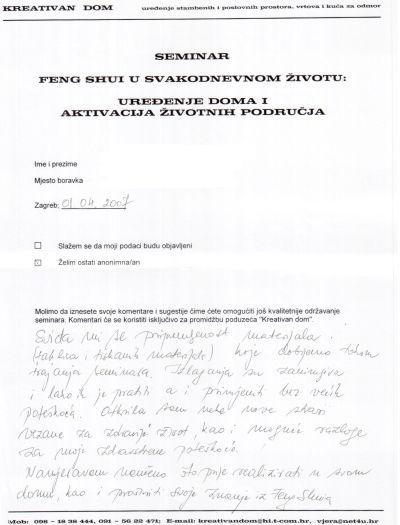 KREATIVAN DOM uređenje stambenih i poslovnih prostora, vrtova i kuća za odmor
SEMINAR
FENG SHUI U SVAKODNEVNOM ŽIVOTU:
UREĐENJE DOMA I
AKTIVACIJA ŽIVOTNIH PODRUČJA
Ime i prezime
Mjesto boravka
Zagreb: 01.04.2007
Slažem se da moji podaci budu objavljeni
Želim ostati anonimna/an
Molimo da iznesete svoje komentare i sugestije čime ćete omogućiti još kvalitetnije održavanje
seminara. Komentari će se koristiti isključivo za promidžbu poduzeća "Kreativan dom".
Sviđa mi se pripremljenost materijala
(tablica i tiskanih materijala) koje dobijemo tokom
trajanja seminara. Izlaganja su zanimljiva
i lako ih je pratiti a i primijeniti bez većih
poteškoća. Otkrila sam neke nove stvari
vezane za zdraviji život, kao i moguće razloge
za moje zdravstvene poteškoće.
Namjeravam naučeno što prije realizirati u svom
domu, kao i proširiti svoje znanje iz Feng Shuia
Mob: 098 - 18 38 444, 091 - 56 22 471; E-mail: kreativandom@hi.t-com.hr, vjera@net4u.hr